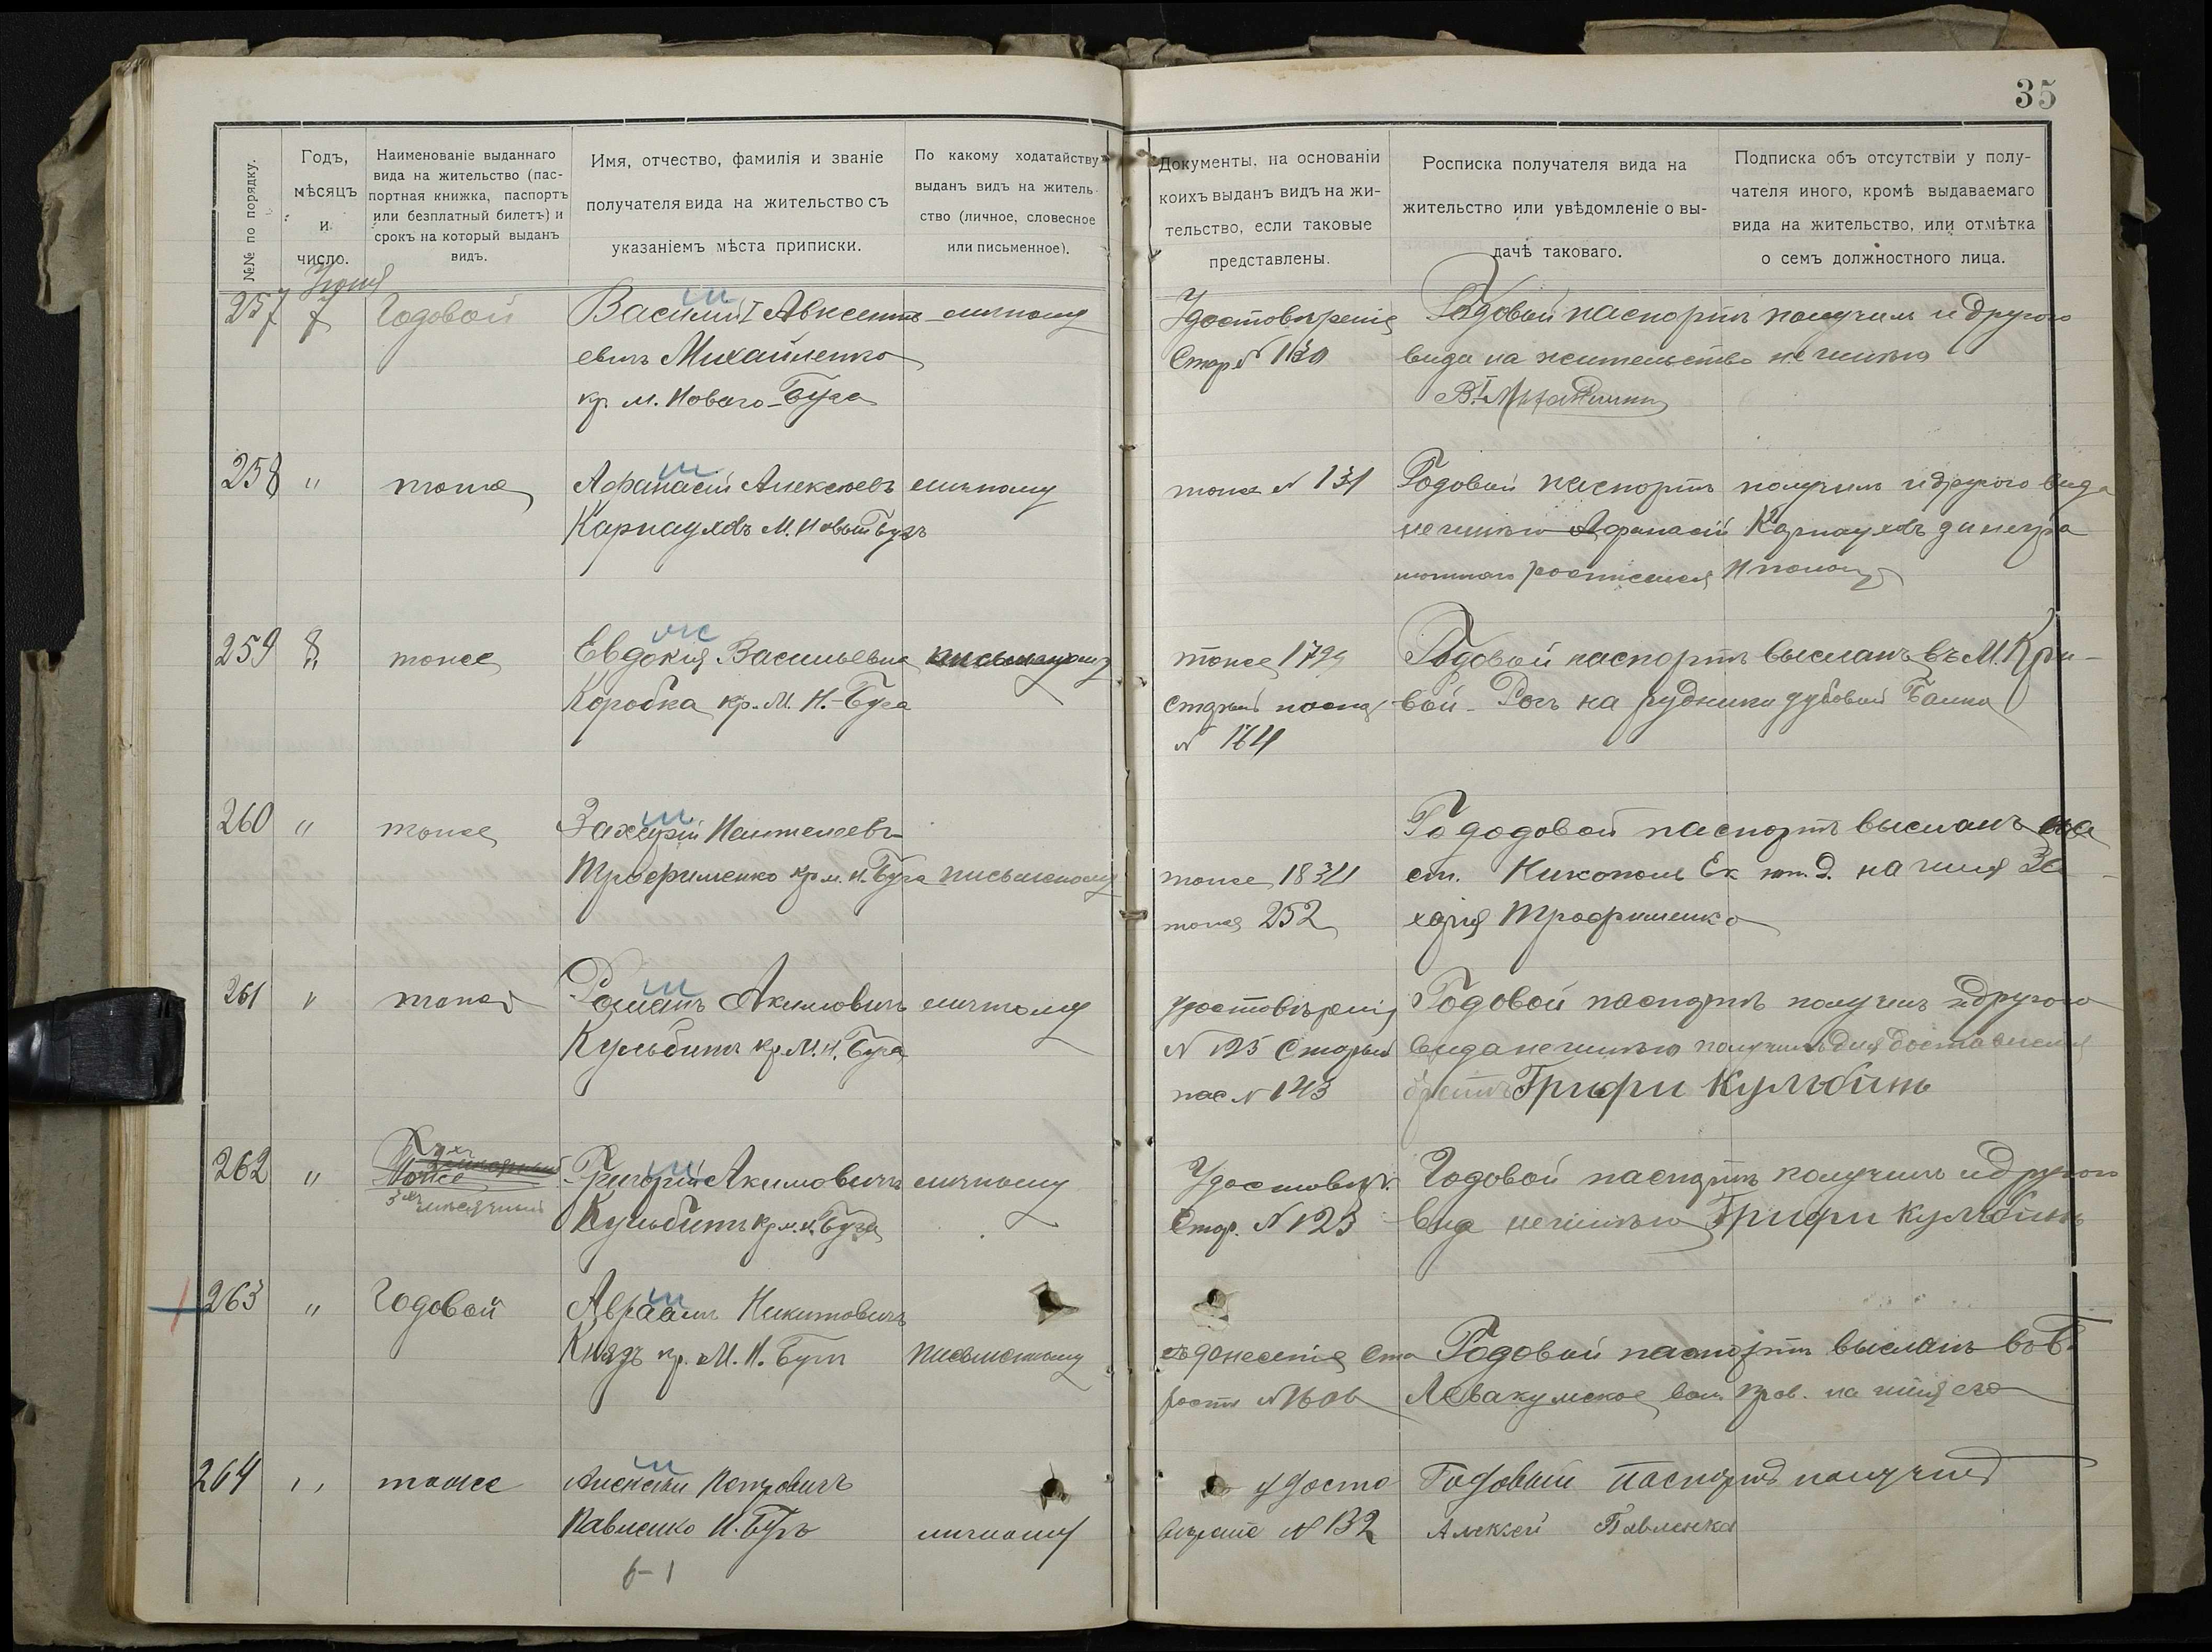 35
№№ по порядку.
Годъ,
мѣсяцъ
и
число.
Наименованіе выданнаго
вида на жительство (пас-
портная книжка, паспортъ
или безплатный билетъ) и
срокъ на который выданъ
видъ.
Имя, отчество, фамилія и званіе
получателя вида на жительство съ
указаніемъ мѣста приписки.
По какому ходатайству
выданъ видъ на житель-
ство (личное, словесное
или письменное).
Документы, на основаніи
коихъ выданъ видъ на жи-
тельство, если таковые
представлены.
Росписка получателя вида на
жительство или увѣдомленіе о вы-
дачѣ таковаго.
Подписка объ отсутствіи у полу-
чателя иного, кромѣ выдаваемаго
вида на жительство, или отмѣтка
о семъ должностного лица.
257 7 Годовой Василій I Авксенть личному
евичъ Михайленко
кр. м. Новаго-Буга
Удостовѣреніе
Стар. № 130
Годовой паспортъ получилъ и другого
вида на жительство не имѣю
258 " тоже Афанасій Алексѣевъ личному
Карнауховъ М. Новый Бугъ
тоже № 131
Годовой паспортъ получилъ и другого вида
не имѣю Афанасій Карнауховъ за негра
мотнаго росписался
259 8 тоже Евдокія Васильевна
Коробка кр. М. Н.-Буга
тоже 179
Старый
№ 164
Годовой паспортъ высланъ въ М. Кри-
вой-Рогъ на рудники дубовая Балка
260 " тоже Захарій Пантелеевъ
Трофименко кр. м. Н. Буга письменному
тоже 1834
тоже 252
Го додовой паспортъ высланъ на
ст. Никополь Ек. ж. д. на имя За
харія Трофименко
261 " тоже Романъ Акимовичъ личному
Кульбитъ кр. М. Н. Буга
удостовѣреніе
№ 125 Старый
пас. № 143
Годовой паспортъ получилъ и другого
вида не имѣю получилъ для доставленія
Грифи Кульбинь
262 " тоже
3 хъ мѣсячный
Григорій Акимовичъ личному
Кульбитъ кр. м. Н. Буга
Удостовѣр.
Стар. № 123
Годовой паспортъ получилъ и другого
вида не имѣю Грифи Кульбинь
263 " Годовой Авраамъ Никитовичъ
Князъ кр. М. Н. Бугъ письменному
донесенія Ста
росты №
Годовой паспортъ высланъ въ
Левакумское вол. прав. на имя его
264 " тоже Алексѣй Петровичъ
Павленко Н. Бугъ личному
6-1
удосто
вѣреніе № 132
Годовый паспортъ получилъ
Алексей Павленко